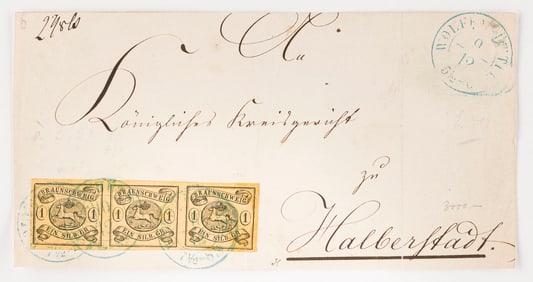 An
Königliches Kreisgericht
zu
Halberstadt.
BRAUNSCHWEIG
1 1
EIN SILB.GR.
BRAUNSCHWEIG
1 1
EIN SILB.GR.
BRAUNSCHWEIG
1 1
EIN SILB.GR.
3000.-